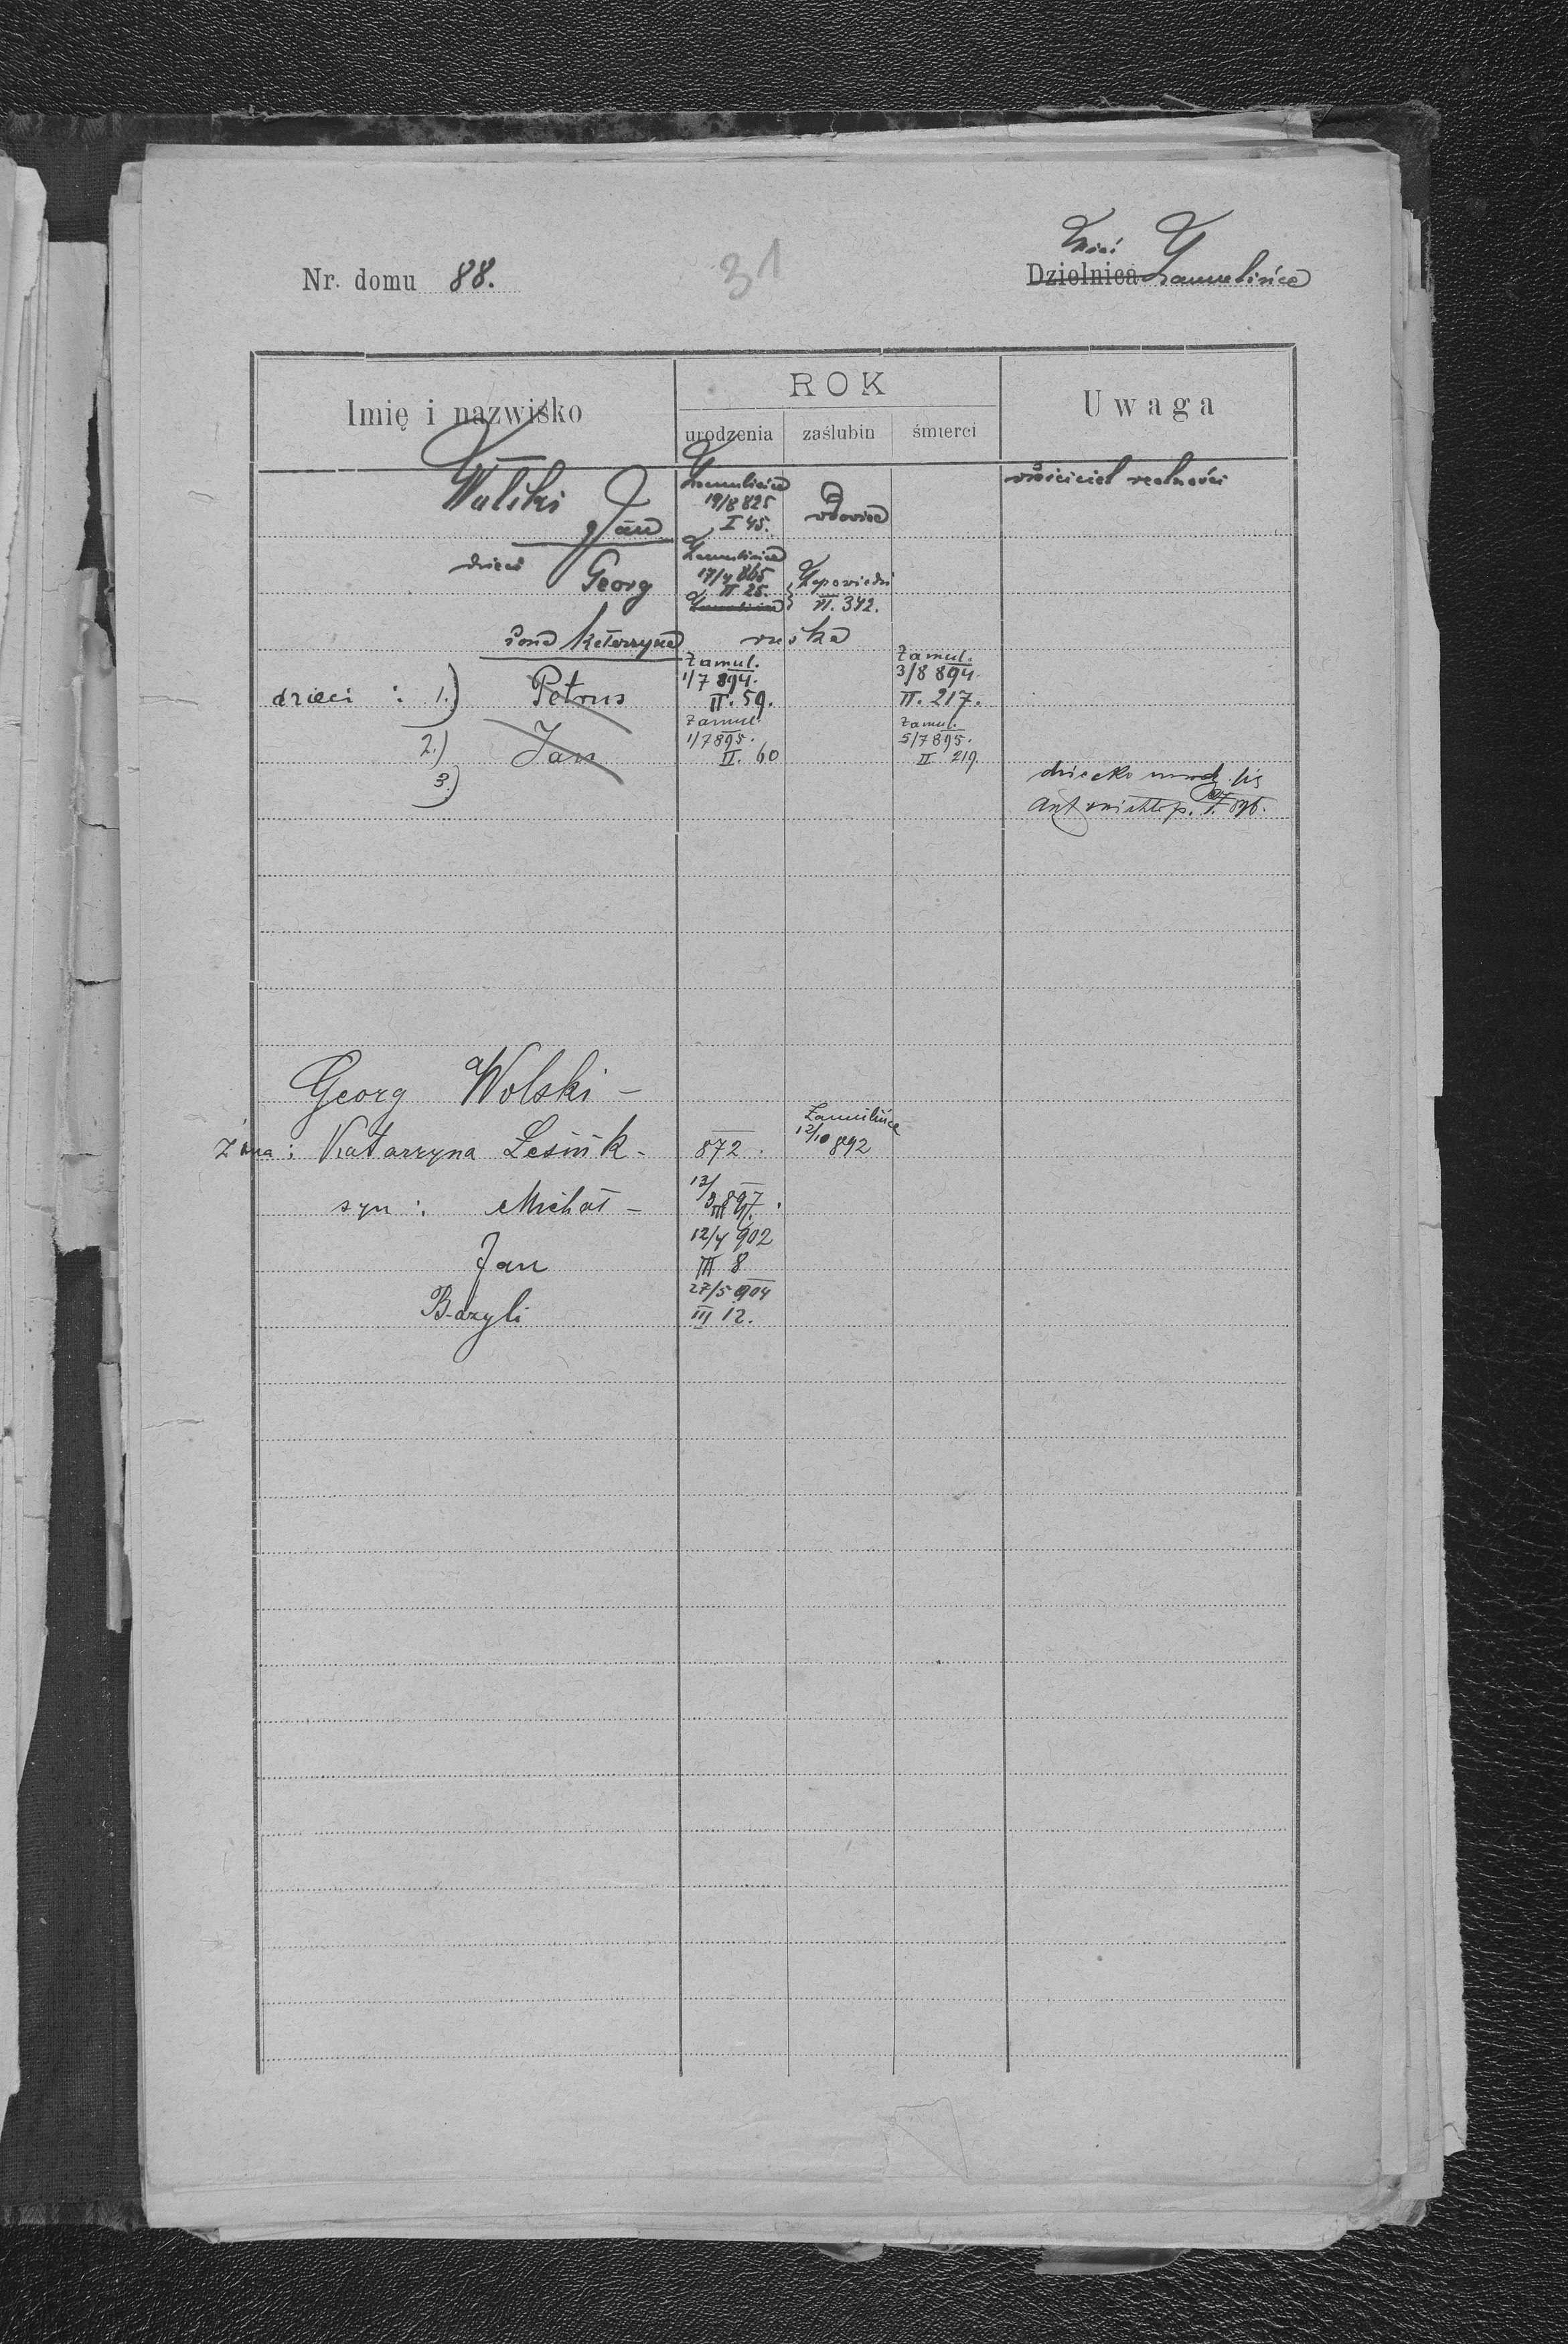 Nr. domu 88.
31
Wieś
Dzielnica Zamulińce
Imię i nazwisko
ROK
urodzenia zaślubin śmierci
Uwaga
Wolski
Jan
Zamulińce
19/8 825
I 45.
wdowiec
właściciel realności
dzieci Georg
Zamulińce
17/4 865
II 25.
Zamulińce
Zapowiedzi
VI. 342.
żona Katarzyna ruska
dzieci : 1.) Petrus
Zamul.
1/7 894.
II. 59.
Zamul.
3/8 894.
II. 217.
2.) Jan
Zamul.
1/7 895.
II. 60
Zamul.
5/7 895.
II 219.
3.)
dziecko
Georg Wolski -
Żona : Katarzyna Leśnik -
872.
Zamulińce
12/10 892
syn : Michał -
12/
897.
Jan
12/4 902
III 8
Bazyli
27/5 904
III 12.